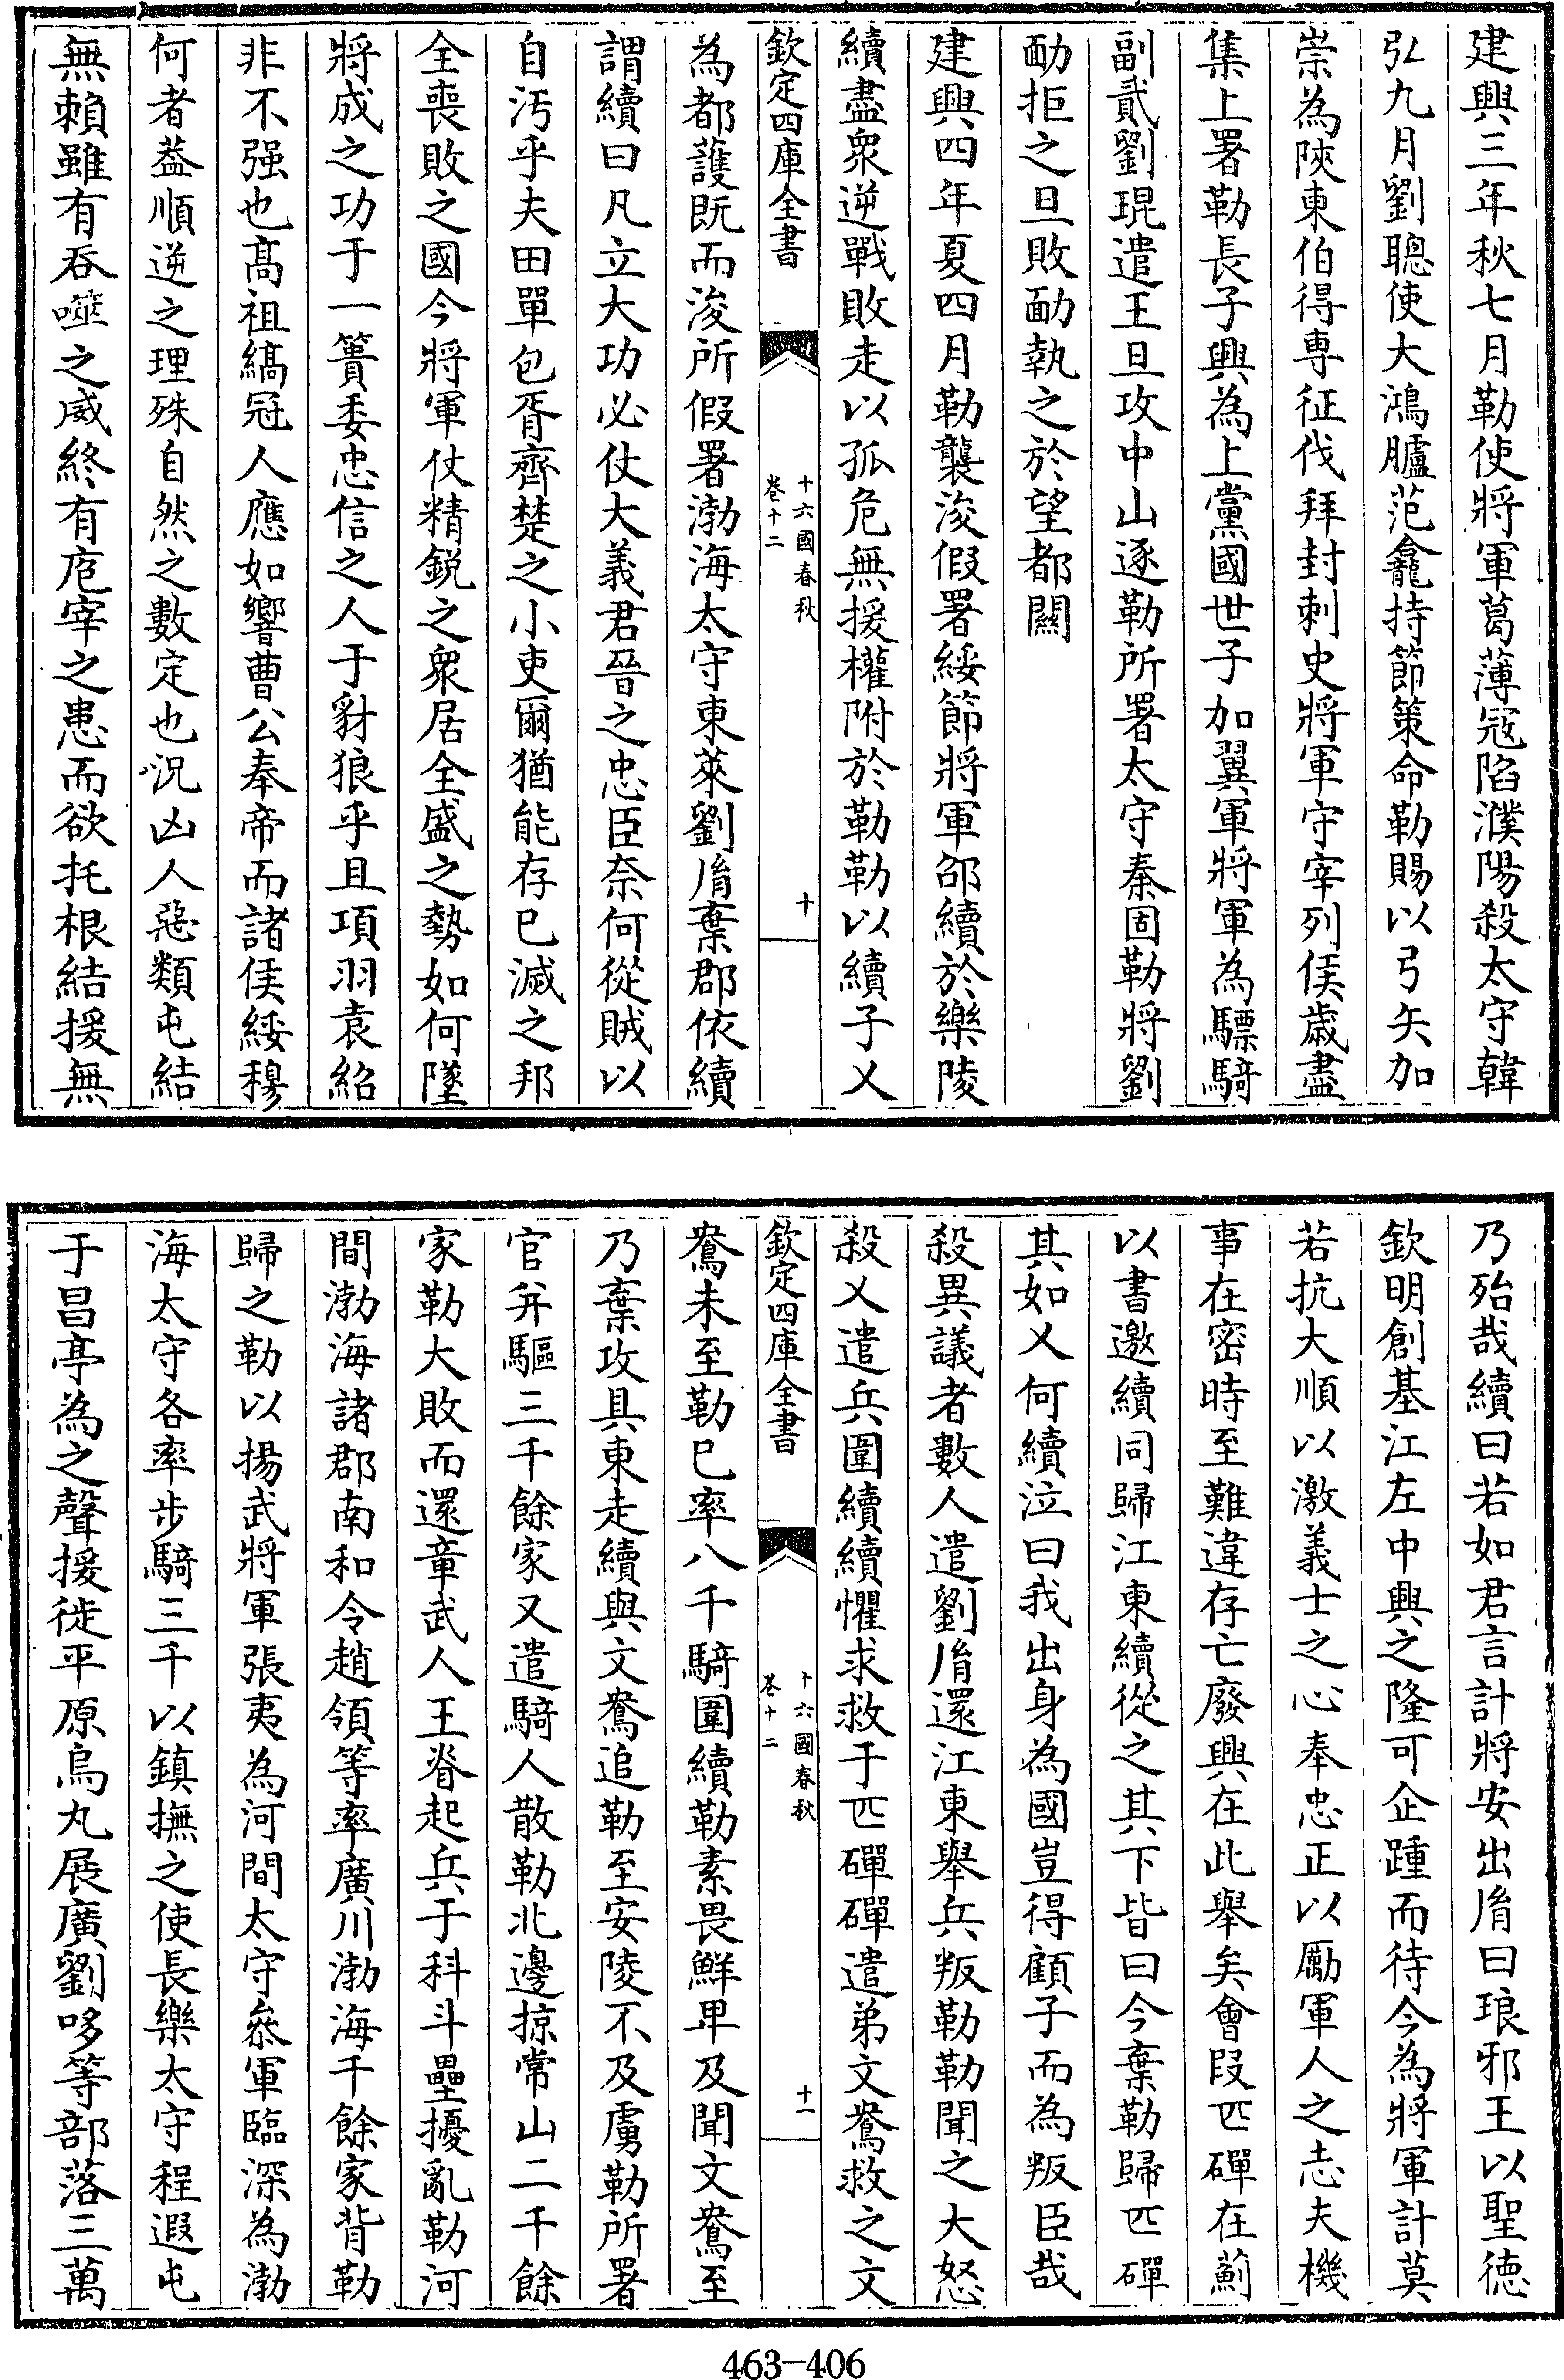 建興三年秋七月勒使將軍葛薄寇陷濮陽殺太守韓
弘九月劉聰使大鴻臚范龕持節策命勒賜以弓矢加
崇為陝東伯得專征伐拜封刺史將軍守宰列侯歲盡
集上署勒長子興為上黨國世子加翼軍將軍為驃騎
副貳劉琨遣王旦攻中山逐勒所署太守秦固勒將劉
勔拒之旦敗勔執之於望都關
建興四年夏四月勒襲浚假署綏節將軍邵續於樂陵
續盡衆逆戰敗走以孤危無援權附於勒勒以續子乂
欽定四庫全書
十六國春秋
卷十二
十
為都護既而浚所假署渤海太守東萊劉胤棄郡依續
謂續曰凡立大功必仗大義君晉之忠臣奈何從賊以
自汚乎夫田單包胥齊楚之小吏爾猶能存已滅之邦
全喪敗之國今將軍仗精銳之衆居全盛之勢如何墜
將成之功于一簣委忠信之人于豺狼乎且項羽袁紹
非不强也髙祖縞冠人應如響曹公奉帝而諸侯綏穆
何者葢順逆之理殊自然之數定也況凶人惡類屯結
無賴雖有呑噬之威終有庖宰之患而欲托根結援無
乃殆哉續曰若如君言計將安出胤曰琅邪王以聖徳
欽明創基江左中興之隆可企踵而待今為將軍計莫
若抗大順以激義士之心奉忠正以厲軍人之志夫機
事在密時至難違存亡廢興在此舉矣會段匹磾在薊
以書邀續同歸江東續從之其下皆曰今棄勒歸匹磾
其如乂何續泣曰我出身為國豈得顧子而為叛臣哉
殺異議者數人遣劉胤還江東舉兵叛勒勒聞之大怒
殺乂遣兵圍續續懼求救于匹磾磾遣弟文鴦救之文
欽定四庫全書
十六國春秋
卷十二
十一
鴦未至勒已率八千騎圍續勒素畏鮮卑及聞文鴦至
乃棄攻具東走續與文鴦追勒至安陵不及虜勒所署
官并驅三千餘家又遣騎人散勒北邊掠常山二千餘
家勒大敗而還章武人王眘起兵于科斗壘擾亂勒河
間渤海諸郡南和令趙領等率廣川渤海千餘家背勒
歸之勒以揚武將軍張夷為河間太守叅軍臨深為渤
海太守各率步騎三千以鎮撫之使長樂太守程遐屯
于昌亭為之聲援徙平原烏丸展廣劉哆等部落三萬
463-406